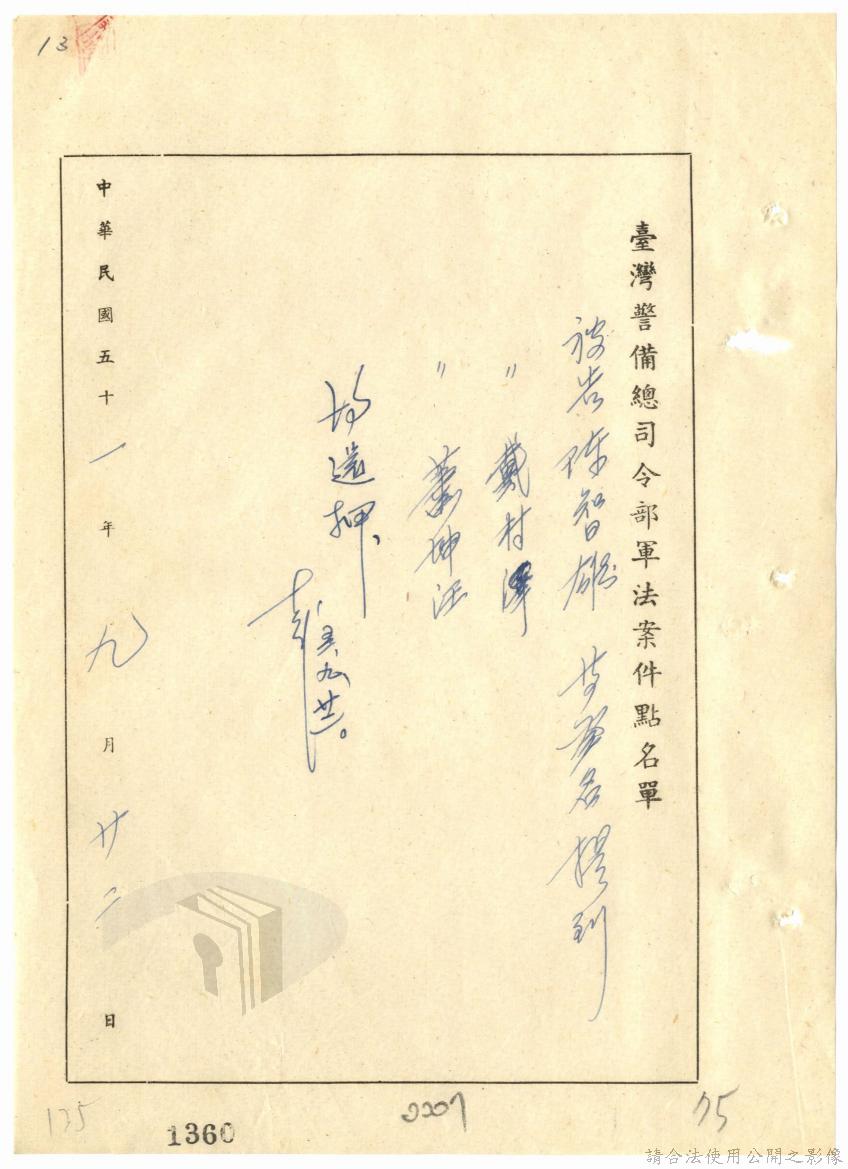 13
臺灣警備總司令部軍法案件點名單
被告陳智雄 共叁名提到
〃 戴村澤
〃 蕭坤旺
均還押、
五、九、廿二。
中華民國五十一年九月廿二日
135
1360
75
請合法使用公開之影像